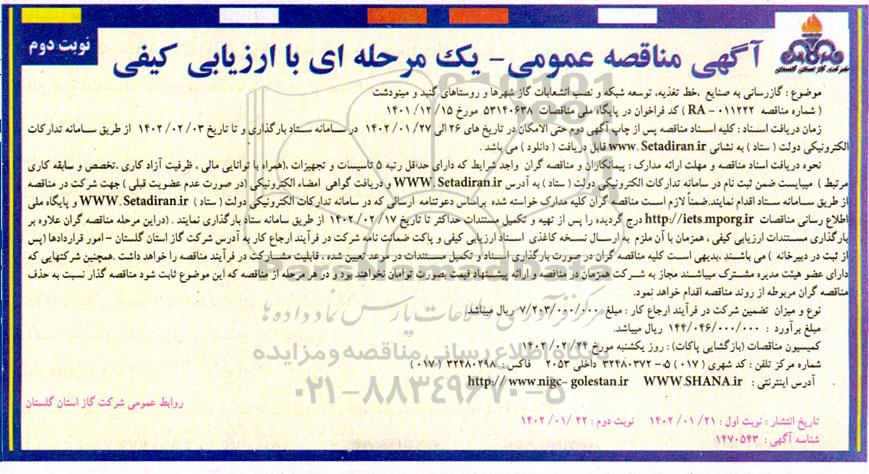 نوبت دوم
آگهی مناقصه عمومی - یک مرحله ای با ارزیابی کیفی
شرکت گاز استان گلستان
موضوع : گازرسانی به صنایع ،خط تغذیه، توسعه شبکه و نصب انشعابات گاز شهرها و روستاهای گنبد و مینودشت
( شماره مناقصه ۰۱۱۲۲۲ - RA ) کد فراخوان در پایگاه ملی مناقصات ۵۳۱۴۰۶۳۸ مورخ ۱۴۰۱/۱۲/۱۵
زمان دریافت اسناد : کلیه اسناد مناقصه پس از چاپ آگهی دوم حتی الامکان در تاریخ های ۲۶ الی ۱۴۰۲/۰۱/۲۷ در سامانه ستاد بارگذاری و تا تاریخ ۱۴۰۲/۰۲/۰۳ از طریق سامانه تدارکات
الکترونیکی دولت ( ستاد ) به نشانی www.Setadiran.ir قابل دریافت ( دانلود ) می باشد .
نحوه دریافت اسناد مناقصه و مهلت ارائه مدارک : پیمانکاران و مناقصه گران واجد شرایط که دارای حداقل رتبه ۵ تاسیسات و تجهیزات ،(همراه با توانایی مالی ، ظرفیت آزاد کاری ،تخصص و سابقه کاری
مرتبط ) میبایست ضمن ثبت نام در سامانه تدارکات الکترونیکی دولت ( ستاد ) به آدرس WWW.Setadiran.ir و دریافت گواهی امضاء الکترونیکی (در صورت عدم عضویت قبلی ) جهت شرکت در مناقصه
از طریق سامانه ستاد اقدام نمایند.ضمناً لازم است مناقصه گران کلیه مدارک خواسته شده براساس دعوتنامه ارسالی که در سامانه تدارکات الکترونیکی دولت ( ستاد ) WWW.Setadiran.ir و پایگاه ملی
اطلاع رسانی مناقصات http://iets.mporg.ir درج گردیده را پس از تهیه و تکمیل مستندات حداکثر تا تاریخ ۱۴۰۲/۰۲/۱۷ از طریق سامانه ستاد بارگذاری نمایند . (دراین مرحله مناقصه گران علاوه بر
بارگذاری مستندات ارزیابی کیفی ، همزمان با آن ملزم به ارسال نسخه کاغذی اسناد ارزیابی کیفی و پاکت ضمانت نامه شرکت در فرآیند ارجاع کار به آدرس شرکت گاز استان گلستان - امور قراردادها (پس
از ثبت در دبیرخانه ) می باشند .بدیهی است کلیه مناقصه گران در صورت بارگذاری اسناد و تکمیل مستندات در موعد تعیین شده ، قابلیت مشارکت در فرآیند مناقصه را خواهد داشت .همچنین شرکتهایی که
دارای عضو هیئت مدیره مشترک میباشند مجاز به شرکت همزمان در مناقصه و ارائه پیشنهاد قیمت بصورت توامان نخواهند بود و در هر مرحله از مناقصه که این موضوع ثابت شود مناقصه گذار نسبت به حذف
مناقصه گران مربوطه از روند مناقصه اقدام خواهد نمود.
نوع و میزان تضمین شرکت در فرآیند ارجاع کار : مبلغ ۷/۲۰۳/۰۰۰/۰۰۰ ریال میباشد.
مبلغ برآورد : ۱۴۴/۰۴۶/۰۰۰/۰۰۰ ریال میباشد.
کمیسیون مناقصات (بازگشایی پاکات) : روز یکشنبه مورخ ۱۴۰۲/۰۲/۲۴
شماره مرکز تلفن : کد شهری (۰۱۷) ۵-۳۲۴۸۰۳۷۲ داخلی ۲۰۵۳ فاکس : ۳۲۴۸۰۲۹۸ (۰۱۷)
آدرس اینترنتی : http:// www.nigc- golestan.ir WWW.SHANA.ir
روابط عمومی شرکت گاز استان گلستان
تاریخ انتشار : نوبت اول : ۱۴۰۲/۰۱/۲۱ نوبت دوم : ۱۴۰۲/۰۱/۲۲
شناسه آگهی : ۱۴۷۰۵۴۳
ParsNamadData
مرکز فرآوری اطلاعات پارس نماد داده ها
پایگاه اطلاع رسانی مناقصه و مزایده
۰۲۱-۸۸۳۴۹۶۷۰-۵